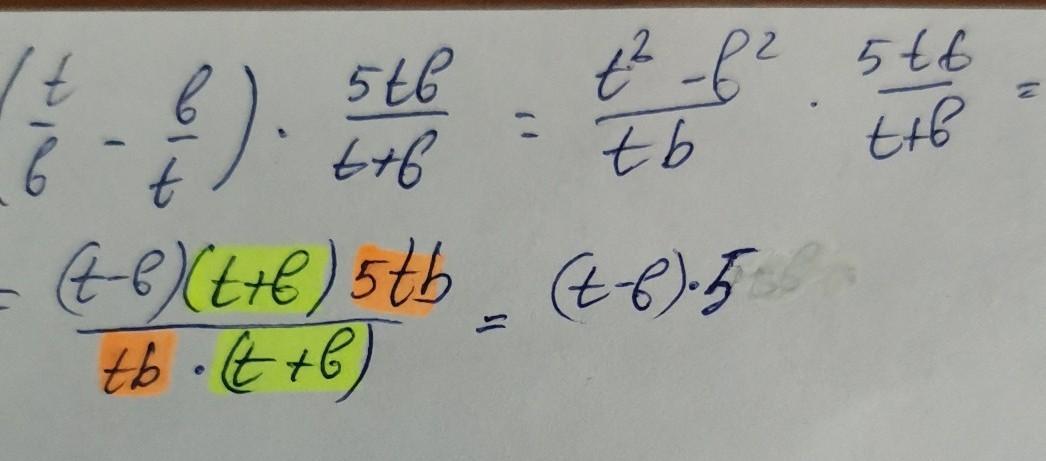 (t/b - b/t) · 5tb/t+b = t² - b²/tb · 5tb/t+b =
= (t-b)(t+b) 5tb/tb · (t+b) = (t-b)·5